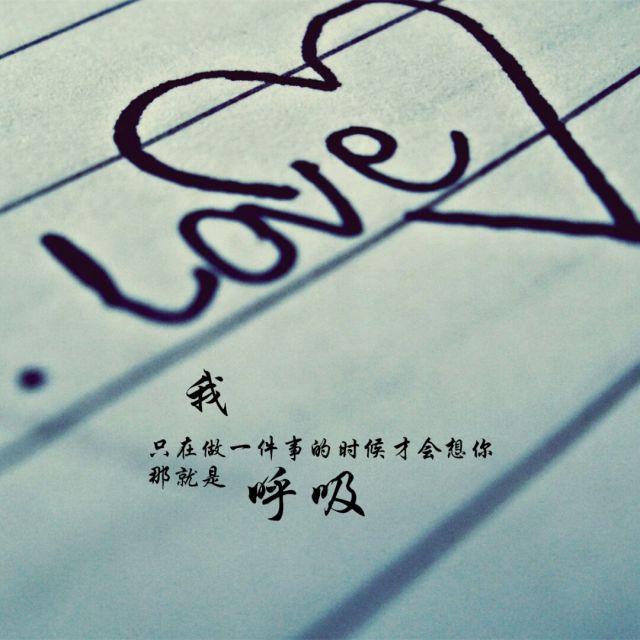 Love
我
只在做一件事的时候才会想你
那就是
呼吸